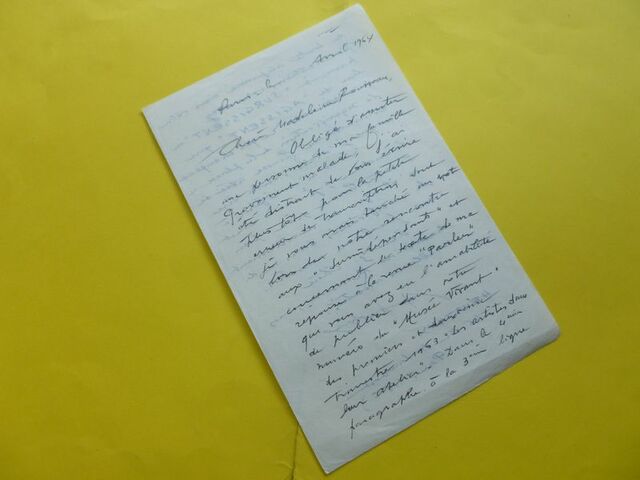 Paris le Avril 1964
Chère Madeleine Rousseau,
Obligé d'assister
une personne de ma famille
gravement malade, j'ai
été distrait de vous écrire
plus tôt pour la petite
erreur de transcription dont
je vous avais touché un mot
lors de notre rencontre
aux "Surindépendants" et
concernant le texte de ma
réponse à la revue "Parler"
que vous avez eu l'amabilité
de publier dans votre
numéro du "Musée Vivant"
des premier et
trimestre 1963 "Les artistes dans
leur atelier". Dans le 4ème
paragraphe à la 3ème ligne